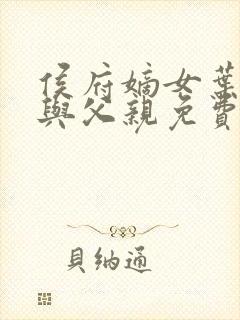 侯府嫡女葉
與父親免費
貝納通